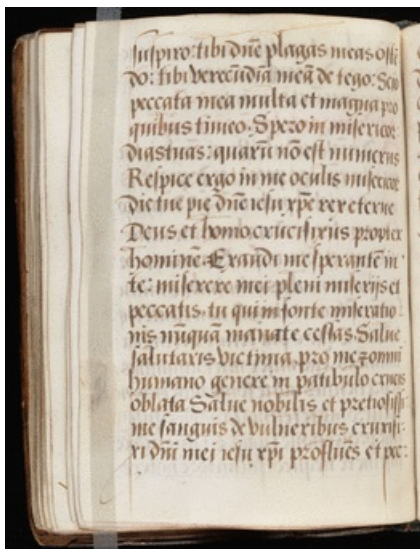 suspiro: tibi dn̄e plagas meas oste
do: tibi verecūdia meā de tego: Scio
peccata mea multa et magna pro
quibus timeo. Spero in misericor
dias tuas: quarū nō est numerus
Respice ergo in me oculis misericor
die tue pie dn̄e iesu xp̄e rex eterne
Deus et homo crucifixus propter
hominē. Exaudi me sperantē in
te: miserere mei pleni miserijs et
peccatis. tu qui in fonte miseratio
nis nūquā manate cessas. Salue
salutaris victima. pro me ⁊ omni
humano genere in patibulo crucis
oblata Salue nobilis et pretiosissi
me sanguis de vulneribus crucifi
xi dn̄i mei iesu xp̄i profluēs et pec: